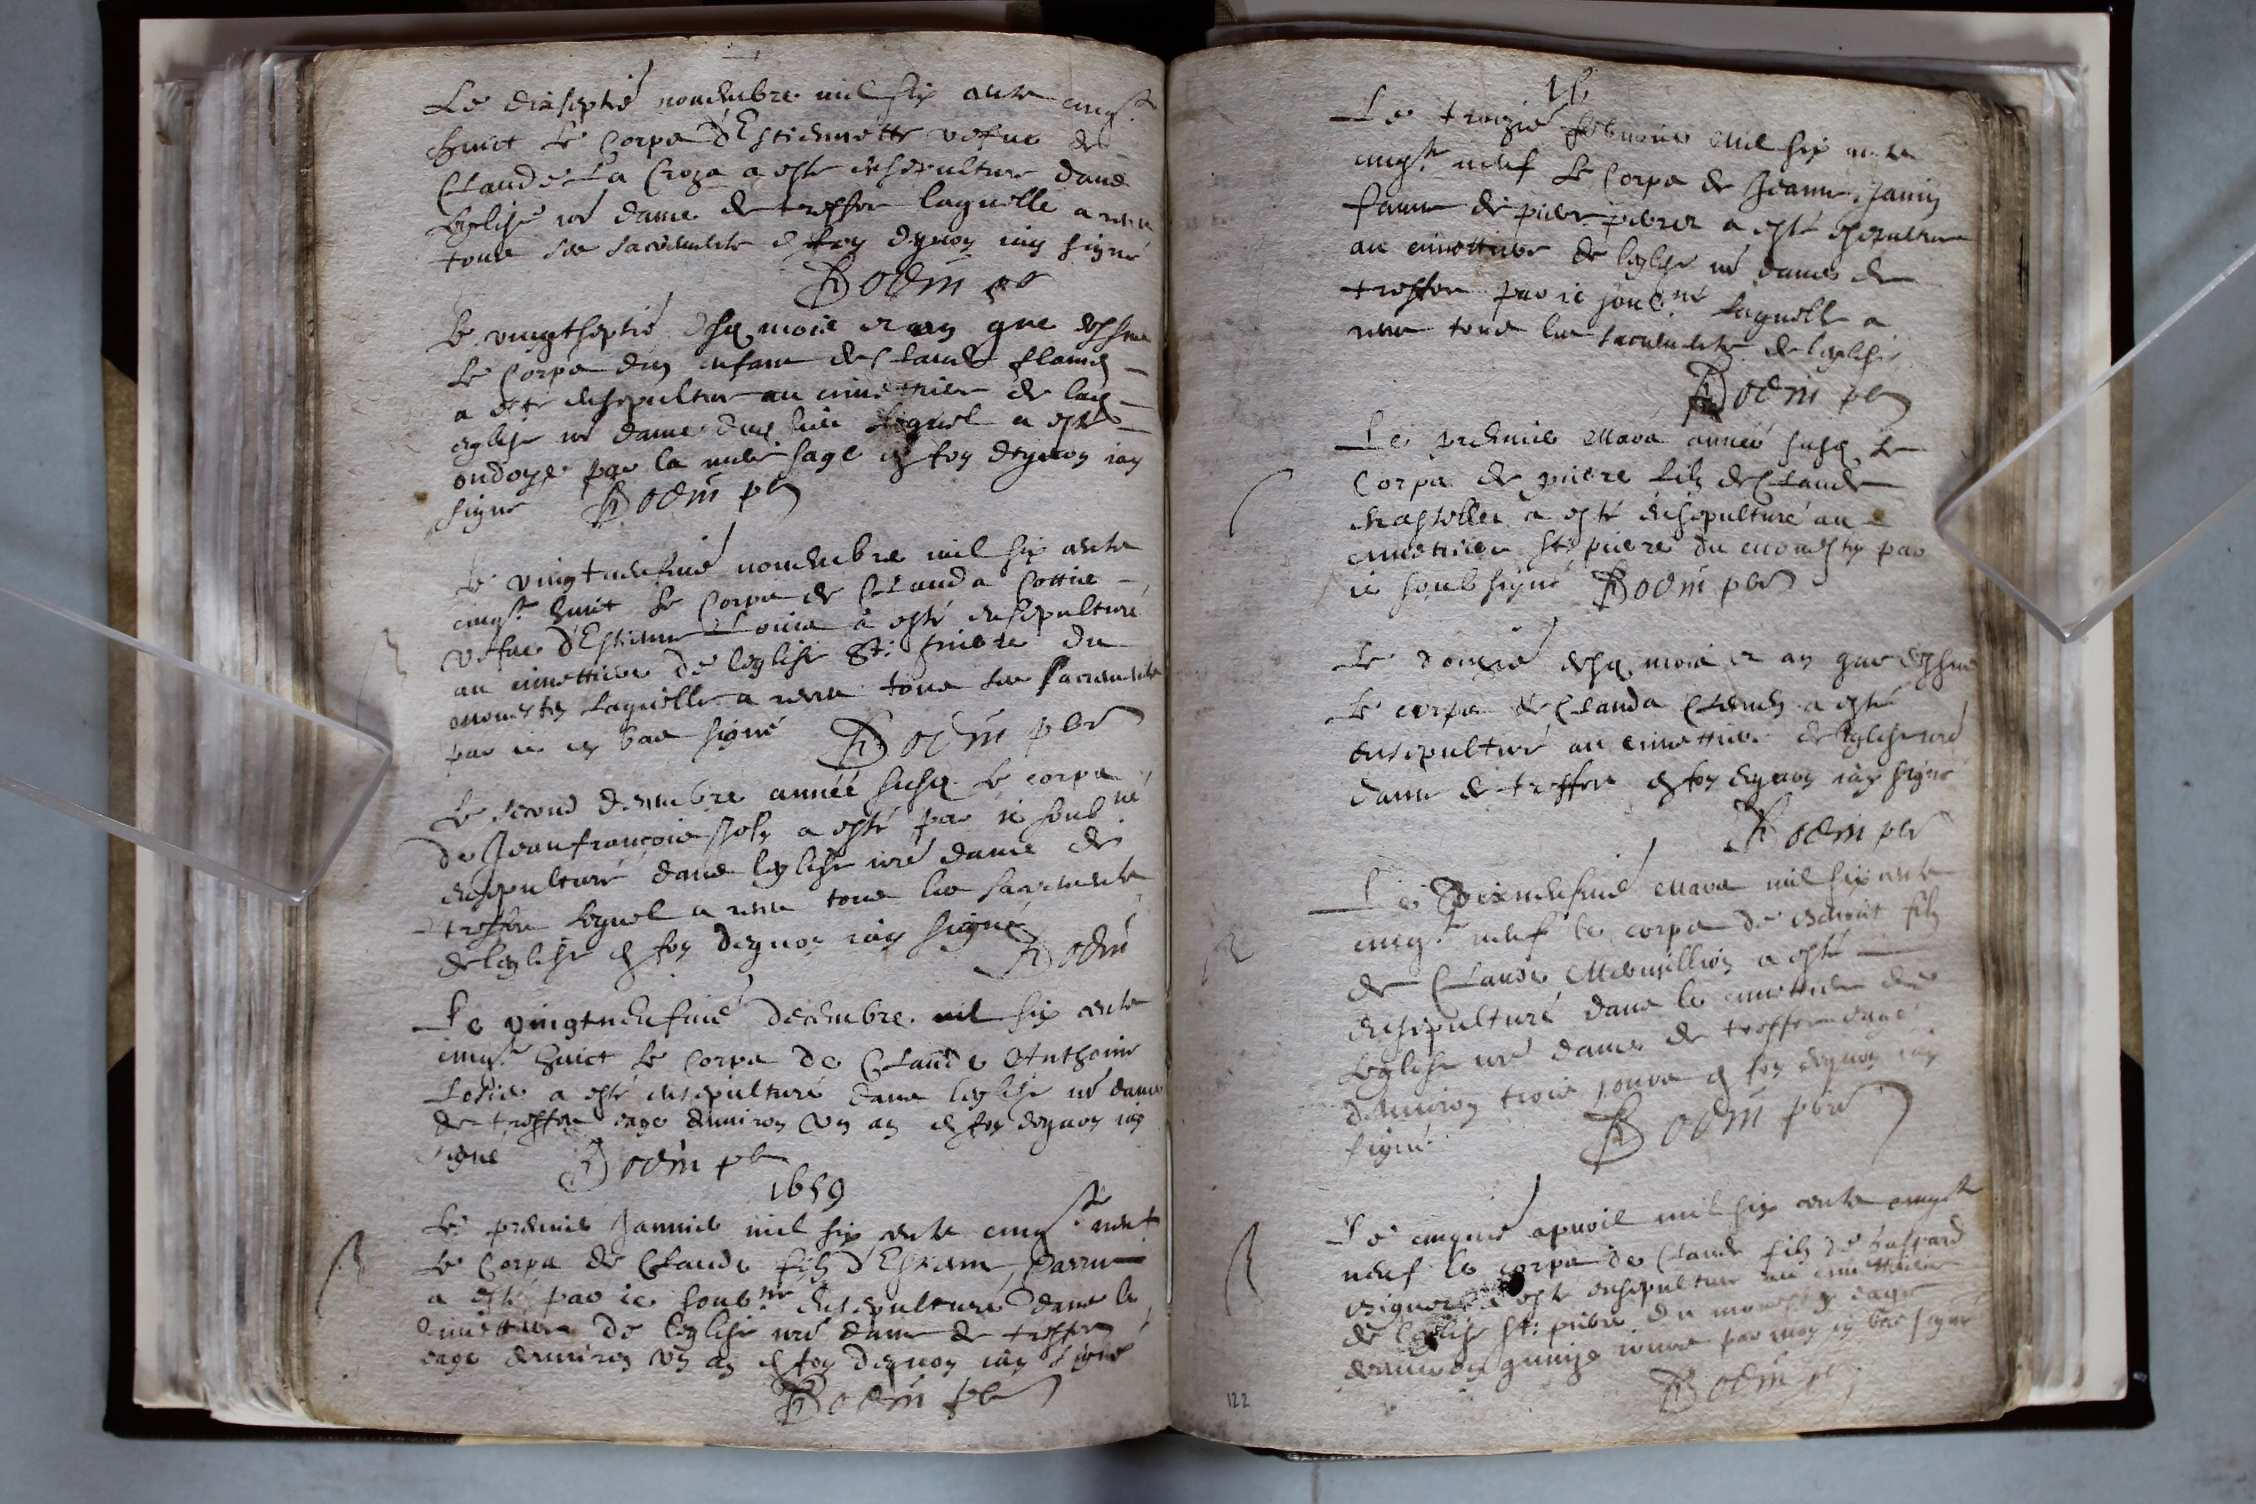 Le dixseptié novembre mil six cents cinq.te
huict le corps d'Estiennette vefue de
Claude La Croza a esté ensepulture dans
leglise nr̃e dame de treffor laquelle a receu
tous ses sacrements en foy dequoy iay signé
Bodin pb
le vingtseptié dsq mois et an que dessus
le corps d'un enfant de Claude
a esté ensepulture au cimettiere de lad
eglise nr̃e dame lequel a esté
ondoyé par la mere sage en foy dequoy iay
signé Bodin pbr
le vingtneufuié novembre mil six cents
cinq.te huict le corps de Clauda Cottie
vefue d'Estienne Loüis a esté ensepulturé
au cimettiere de leglise St: pierre du
monestey laquelle a receu tous ses sacrements
par ie en bas signé Bodin pbr
le second decembre année susd. le corps
de Jeanfrançois Joly a esté par ie soub.né
ensepulturé dans leglise nr̃e dame de
treffor lequel a receu tous les sacrements
de leglise en foy dequoy iay signé
Bodin
Le vingtneufuié decembre mil six cents
cinq.te huict le corps de Claude Anthoine
a esté ensepulturé dans leglise nr̃e dame
de treffor eage denuiron vn an en foy dequoy iay
signé Bodin pb
1659
Le premier Januier mil six cents cinq.te neuf
le corps de Claude filz d'Estienne
a esté par ie soub.né ensepulturé dans le
cimettiere de leglise nr̃e dame de treffor
eage denuiron vn an en foy dequoy iay signé
Bodin pbr
Le troizié feburier mil six cents
cinq.te neuf le corps de Jeanne Janin
fame de pierre a esté ensepulturee
au cimettiere de leglise nr̃e dame de
treffor par ie soub.né laquelle a
receu tous les sacrements de leglise
Bodin pbr
Le premier Mars année susd. le
corps de pierre filz de Claude
Chastellet a esté ensepulturé au
cimettiere St: pierre du monestey par
ie soubsigné Bodin pbr
le douzié dsq mois et an que dessus
le corps de Clauda Clement a esté
ensepulturé au cimettiere de leglise nr̃e
dame de treffor en foy dequoy iay signé
Bodin pbr
Le dixneufuié Mars mil six cents
cinq.te neuf le corps de Benoit filz
de Claude Mermillion a esté
ensepulturé dans le cimettiere de
leglise nr̃e dame de treffor eage
denuiron trois jours en foy dequoy iay
signé Bodin pbr
Le cinquié apuril mil six cents cinq.te
neuf le corps de Claude filz de Gaspard
a esté ensepulture au cimettiere
de leglise St: pierre du monestey eage
denuiron quinze iours par moy en bas signé
Bodin pbr
122